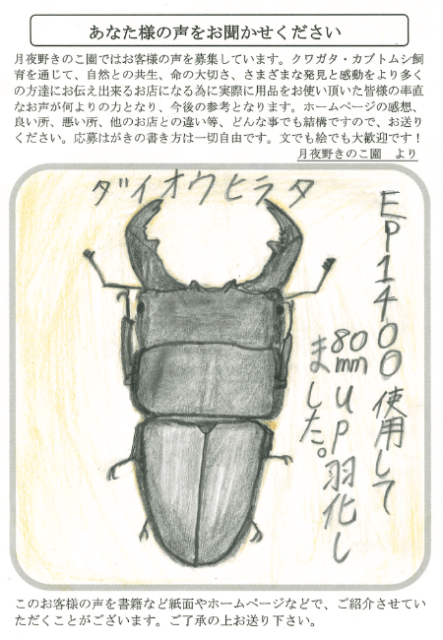 あなた様の声をお聞かせください
月夜野きのこ園ではお客様の声を募集しています。クワガタ・カブトムシ飼
育を通じて、自然との共生、命の大切さ、さまざまな発見と感動をより多く
の方達にお伝え出来るお店になる為に実際に用品をお使い頂いた皆様の率直
なお声が何よりの力となり、今後の参考となります。ホームページの感想、
良い所、悪い所、他のお店との違い等、どんな事でも結構ですので、お送り
ください。応募はがきの書き方は一切自由です。文でも絵でも大歓迎です！
月夜野きのこ園　より
ダイオウヒラタ
EP1400使用して
80mmup羽化し
ました。
このお客様の声を書籍など紙面やホームページなどで、ご紹介させてい
ただくことがございます。ご了承の上お送り下さい。